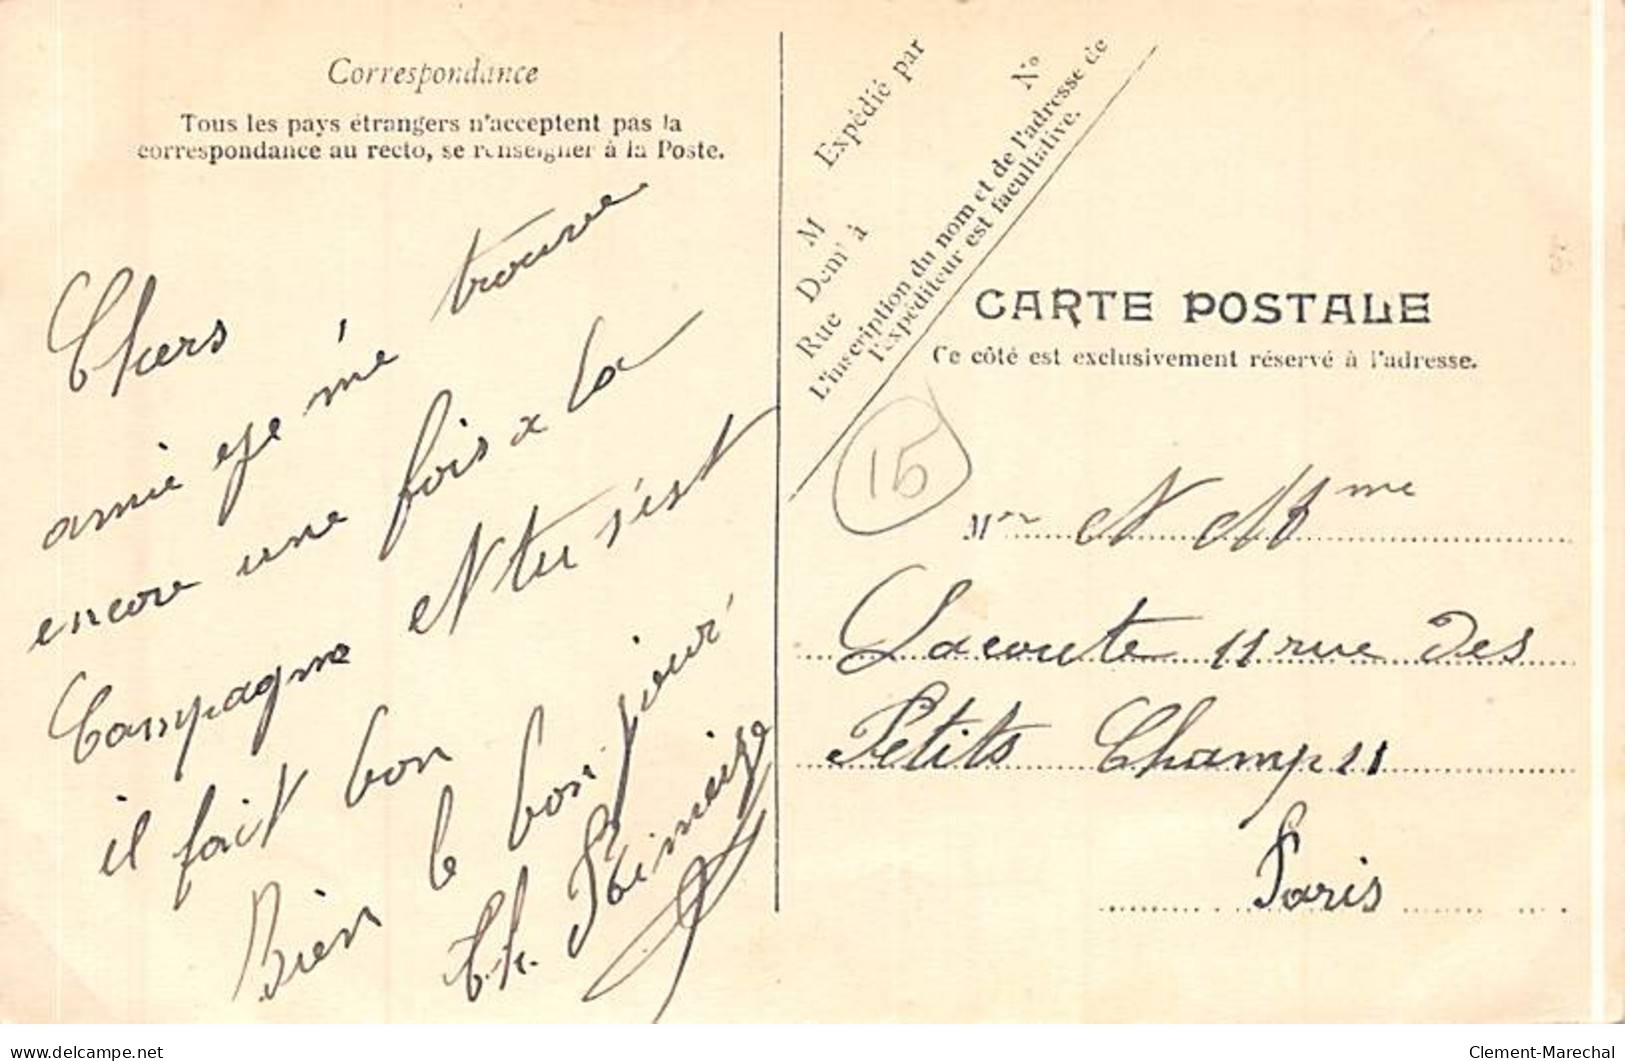 Correspondance
Tous les pays étrangers n'acceptent pas la
correspondance au recto, se renseigner à la Poste.
Expédié par
M
Demt à
Rue N°
L'inscription du nom et de l'adresse de
l'expéditeur est facultative.
CARTE POSTALE
Ce côté est exclusivement réservé à l'adresse.
15
Chers
amie je me trouve
encore une fois a la
Campagne et tu s'est
il fait bon
Bien le bonjour
Ch.
Mr et Mme
Lacoute 11 rue Des
Petits Champ 11
Paris
delcampe.net
Clement-Marechal